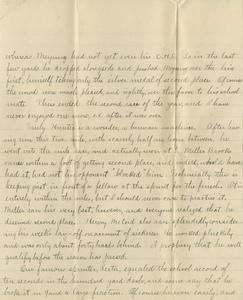 whereas Meyning had not yet won his O.M.S. So in the last
few yards he dropped alongside and pushed Meyning over the line
first, himself taking only the silver medal of second place. Of course
the crowd was much pleased, and rightly, over this favor to his school
mate. Thus ended the second race of the year, and I have
never enjoyed one more, i.e. after it was over
Truly Hunter is a wonder, a human machine. After hav
ing run this mile, with scarcely half an hour between, he
went into the mile race, and actually won it! Miller Brooks
came within a foot of getting second place, and indeed, would have
had it, had not his opponent "blocked" him. Technically this is
keeping just in front of a fellow at the sprint for the finish. It is
entirely within the rules, but I should never care to practise it.
Miller ran his very best, however, and everyone realized that he
deserved second place. Henry McLeod also ran splendidly consider
ing his week's lay-off on account of sickness. He worked pluckily
and was only about forty yards behind. I prophesy that he will
qualify before the season has passed.
Our famous sprinter, equaled the school record of
ten seconds in the hundred yard dash, and some say that he
broke it by a large fraction. Of course he won easily, and